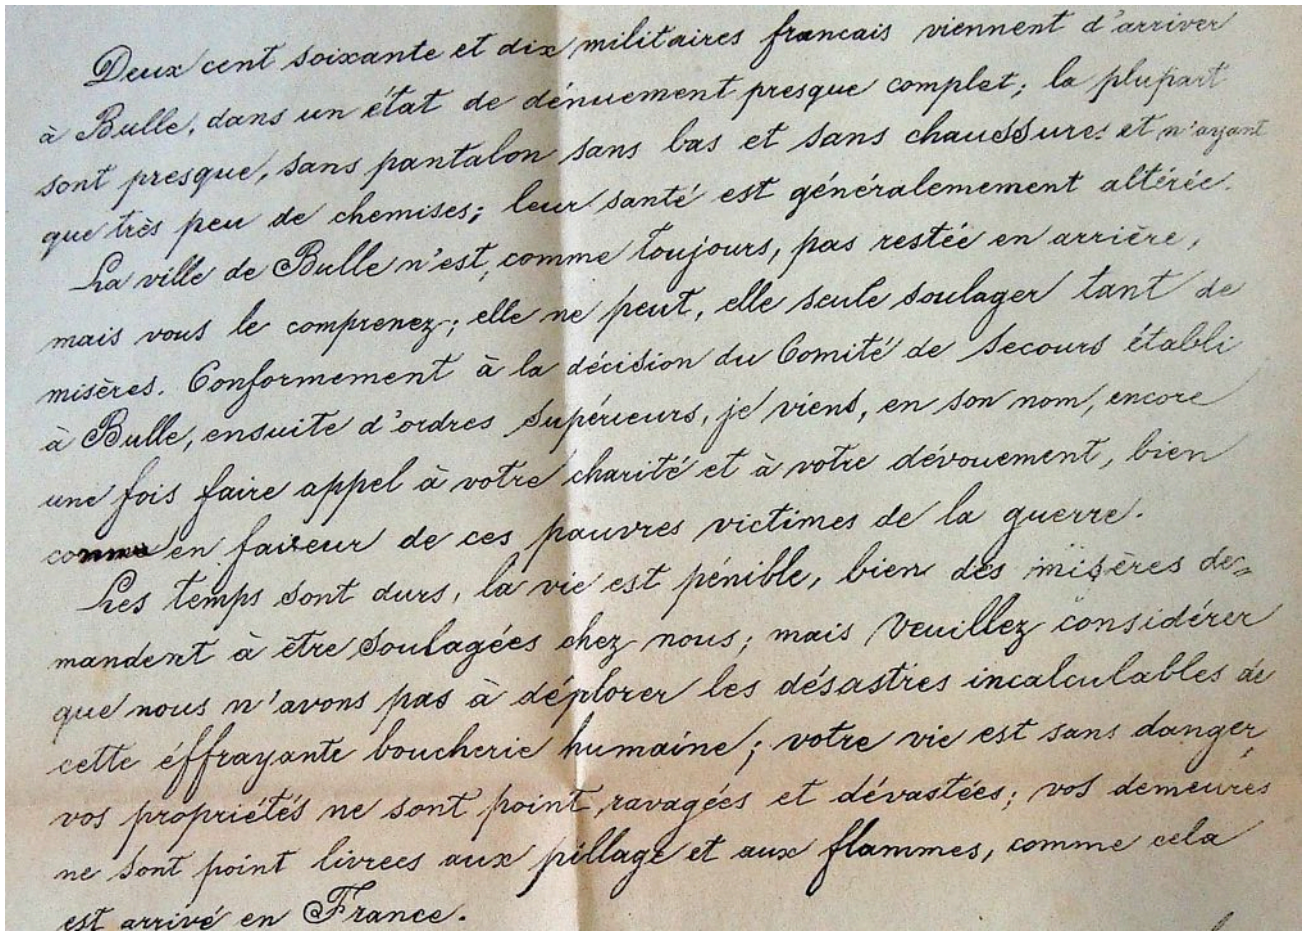 Deux cent soixante et dix militaires francais viennent d'arriver
à Bulle, dans un état de dénuement presque complet; la plupart
sont presque, sans pantalon sans bas et sans chaussures et n'ayant
que très peu de chemises; leur santé est généralemement altérée.
La ville de Bulle n'est, comme toujours, pas restée en arrière,
mais vous le comprenez; elle ne peut, elle seule soulager tant de
misères. Conformement à la décision du Comité de Secours établi
à Bulle, ensuite d'ordres supérieurs, je viens, en son nom, encore
une fois faire appel à votre charité et à votre dévouement, bien
comme en faveur de ces pauvres victimes de la guerre.
Les temps sont durs, la vie est pénible, bien des misères de=
mandent à être soulagées chez nous; mais veuillez considérer
que nous n'avons pas à déplorer les désastres incalculables de
cette éffrayante boucherie humaine; votre vie est sans danger,
vos propriétés ne sont point, ravagées et dévastées; vos demeures
ne sont point livrees aux pillage et aux flammes, comme cela
est arrivé en France.